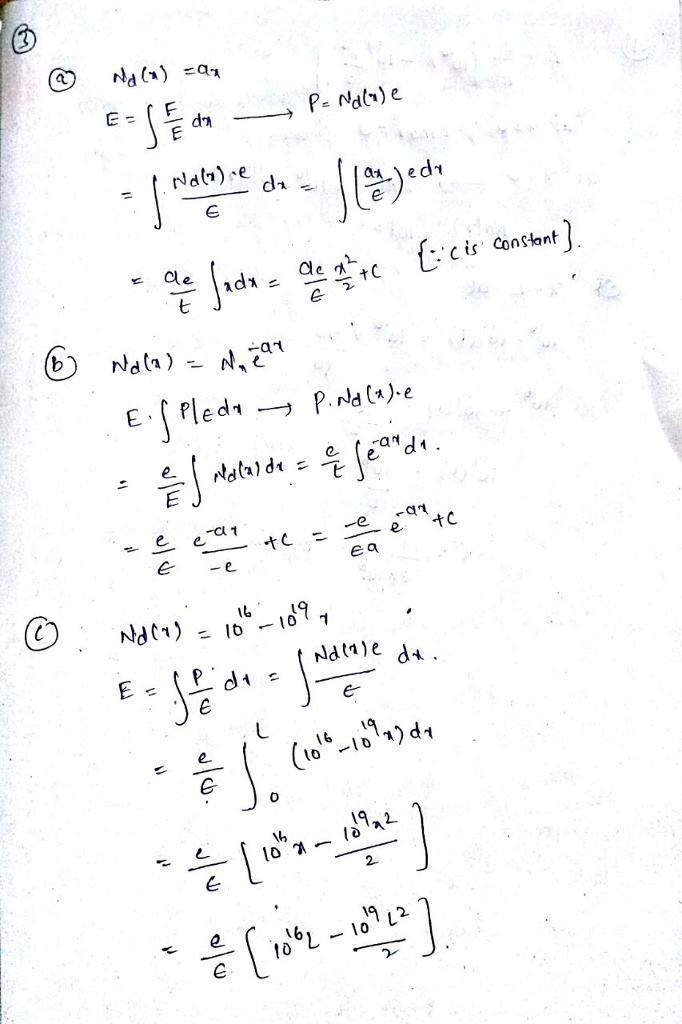 ③
ⓐ Nd(x) = ax
E = ∫ F/E dx → P = Nd(x) e
= ∫ Nd(x)·e / ε dx = ∫ (ax/ε) e dx
= ae/t ∫ x dx = ae/ε x²/2 + c {∵ c is constant}.
ⓑ Nd(x) = N₀ e^-ax
E · ∫ P/ε dx → P. Nd(x)·e
= e/E ∫ Nd(x) dx = e/t ∫ e^-ax dx.
= e/ε e^-ax/-e + c = -e/εa e^-ax + c
ⓒ Nd(x) = 10^16 - 10^19 x
E = ∫ P/ε dx = ∫ Nd(x)e/ε dx.
= e/ε ∫₀^L (10^16 - 10^19 x) dx
= e/ε [10^16 x - 10^19 x²/2]
= e/ε [10^16 L - 10^19 L²/2].